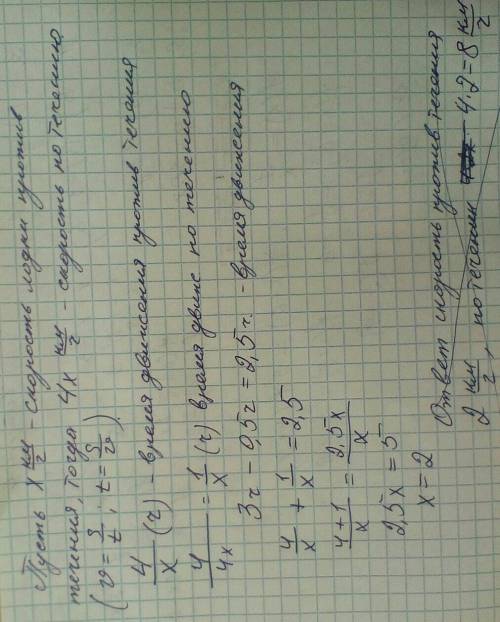 Пусть x км/г - скорость лодки против
течения, тогда 4x км/г - скорость по течению
(v = S/t ; t = S/v)
4/x (г) - время движения против течения
4/4x = 1/x (г) время движе по течению
3г - 0,5г = 2,5г. - время движения
4/x + 1/x = 2,5
4+1/x = 2,5x/x
2,5x = 5
x = 2
Ответ скорость против течения
2 км/г, по течении 4·2=8 км/г